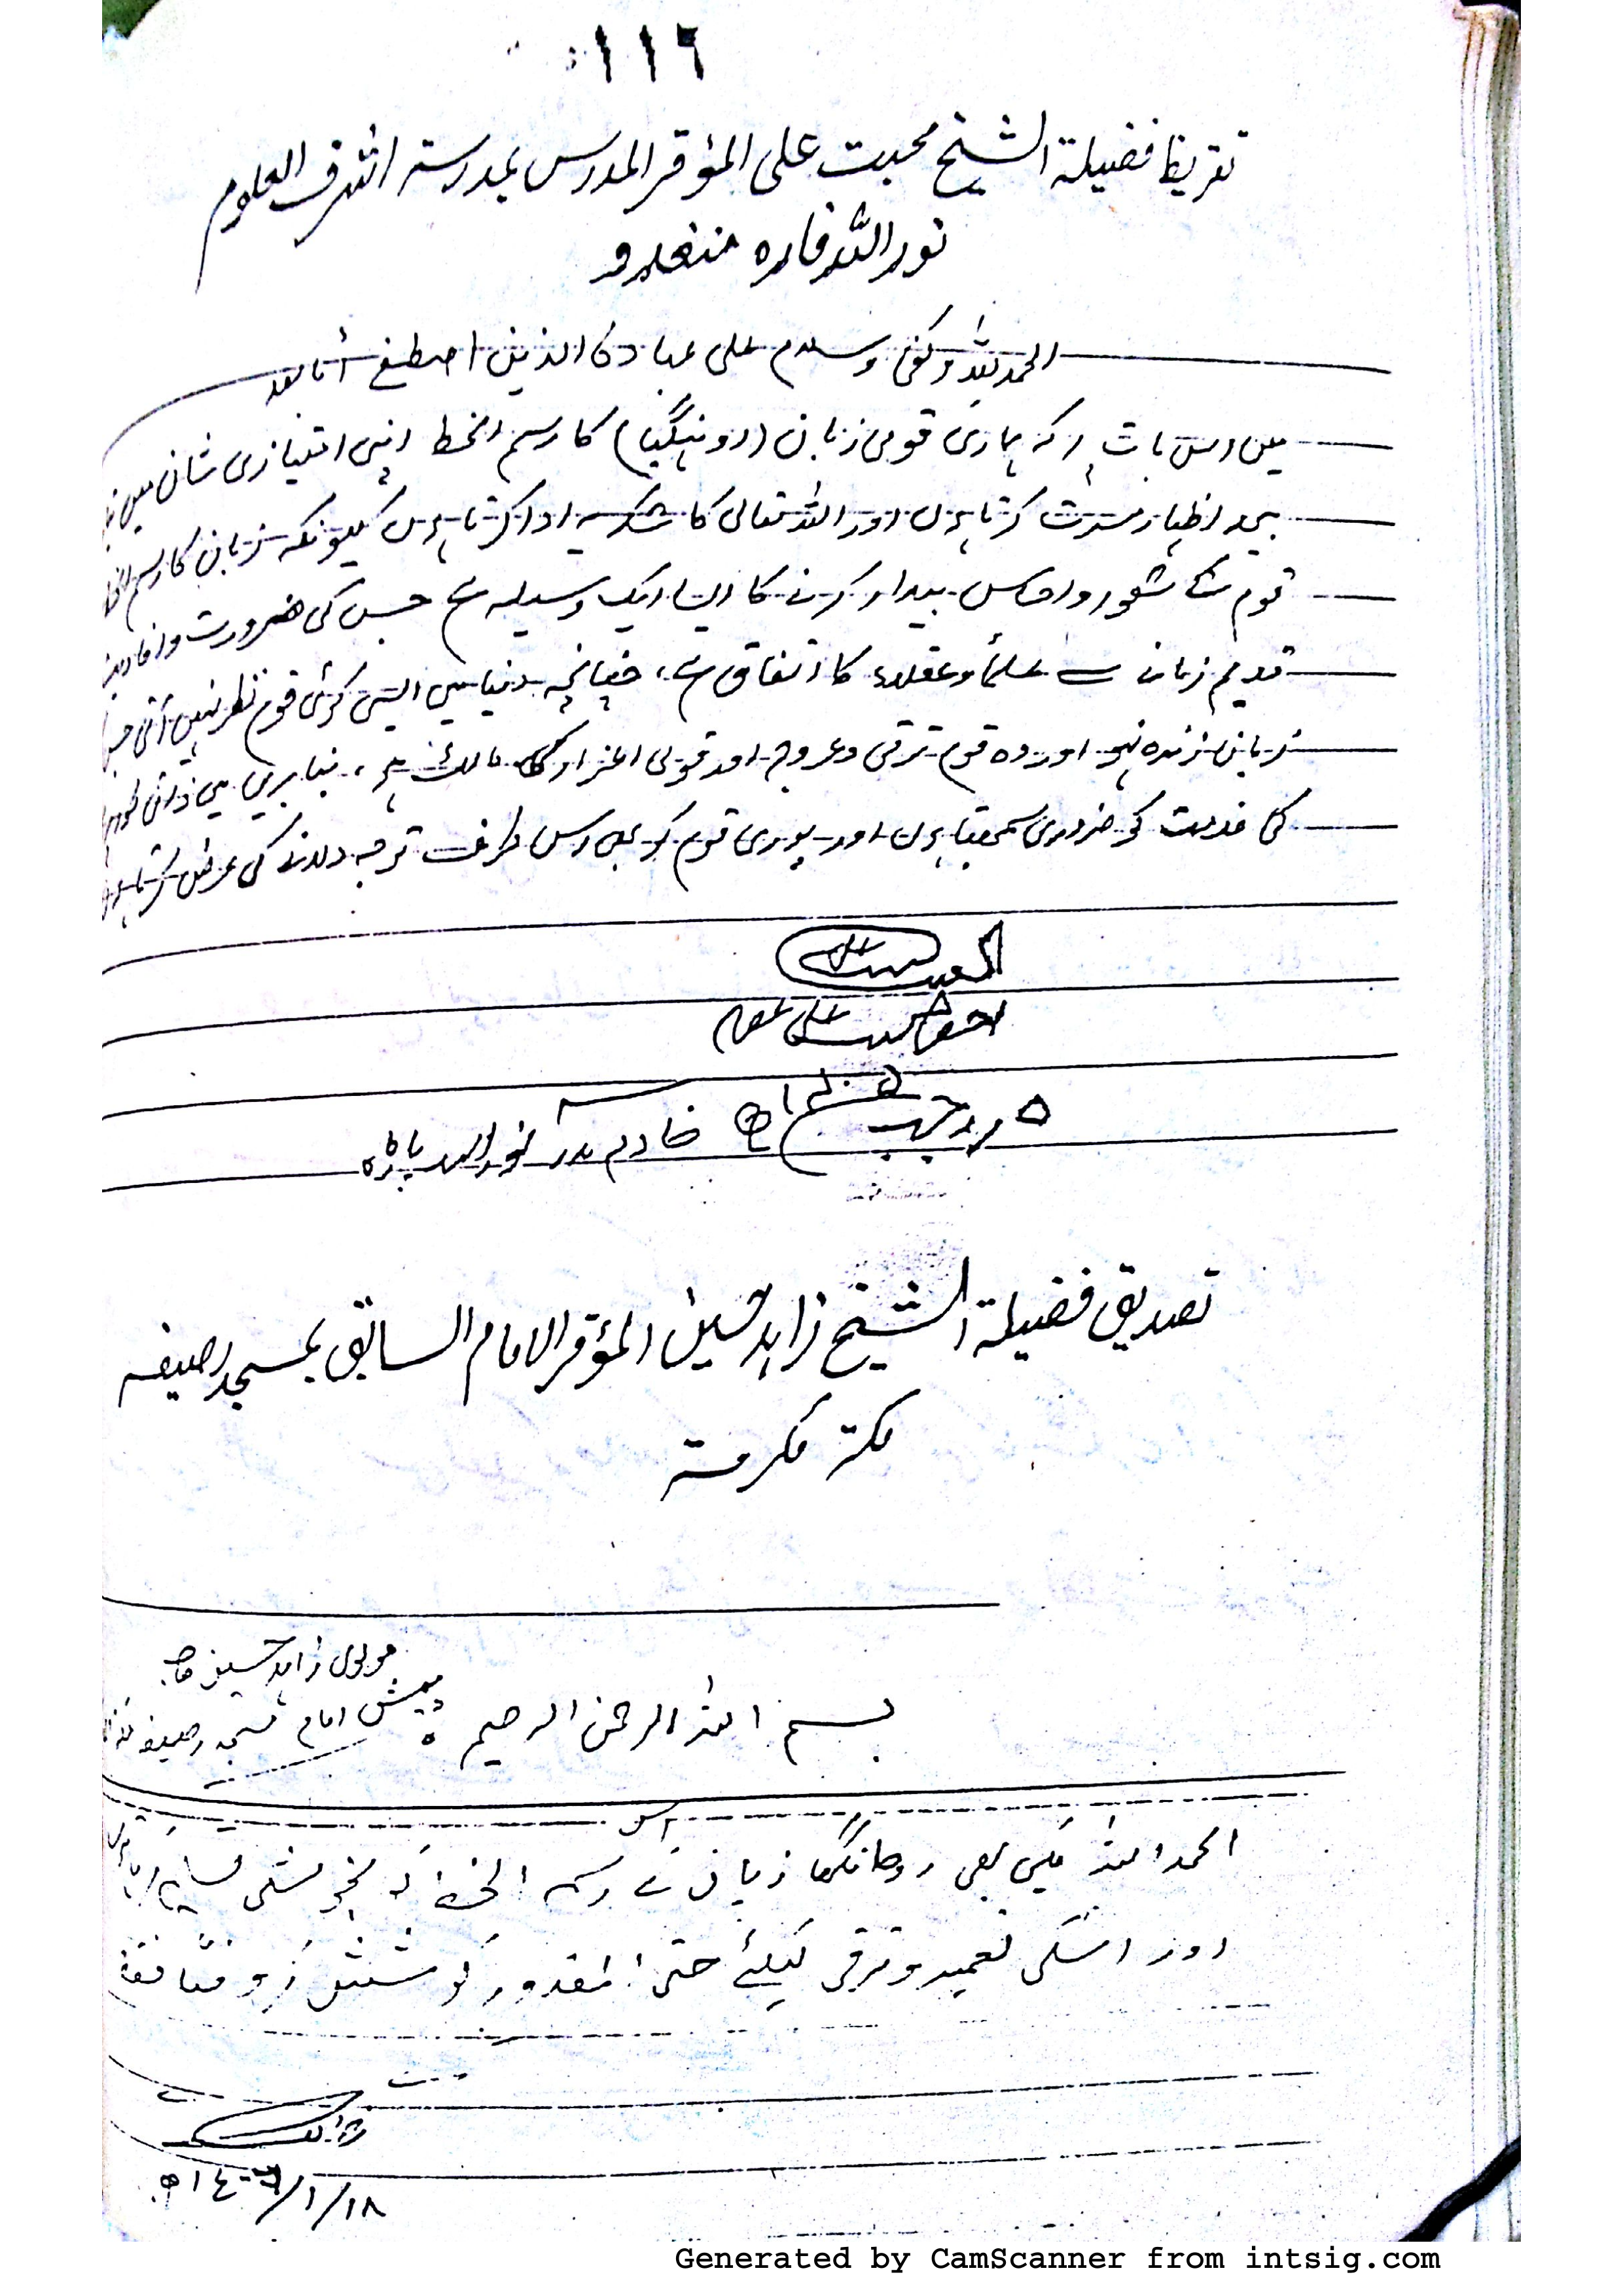 ١١٦
تقريظ فضيلة الشيخ محبت على المؤقر المدرس بمدرسة اشرف العلوم
نور اللہ فارہ منغدو
الحمد للہ وکفی وسلام علی عبادہ الذین اصطفی أما بعد
میں اس بات پر کہ ہماری قومی زبان (روہنگیا) کا رسم الخط اپنی امتیازی شان میں
بیحد اظہار مسرت کرتا ہوں اور اللہ تعالی کا شکریہ ادا کرتا ہوں کیونکہ زبان کا رسم
قوم کے شعور و احساس بیدار کرنے کا ایسا ایک وسیلہ ہے جس کی ضرورت و
قدیم زمانہ سے علماء وعقلاء کا اتفاق ہے، چنانچہ دنیا میں ایسی کوئی قوم نظر نہیں آتی
زبان زندہ نہو اور وہ قوم ترقی وعروج اور قومی اعزاز کی مالک ہو، بنا بریں میں ذاتی
کی خدمت کو ضروری سمجھتا ہوں اور پوری قوم کو بھی اس طرف توجہ دلانے کی عرض کرتا
احقر محبت علی
۵ رجب خادم مدرسہ نور اللہ پاڑہ
تصديق فضيلة الشيخ زاہد حسین المؤقر الامام السابق بمسجد رصيفه
مكة مكرمة
مولوی زاہد حسین صاحب
پیش امام مسجد رصیفہ
بسم اللہ الرحمن الرحیم
الحمد اللہ میں بھی روہانگیا زبان کے اس رسم الخط کو بخوشی تسلیم کرتا ہوں
اور اسکی تعمیر و ترقی کیلئے حتی المقدور کوشش
١٨/١/